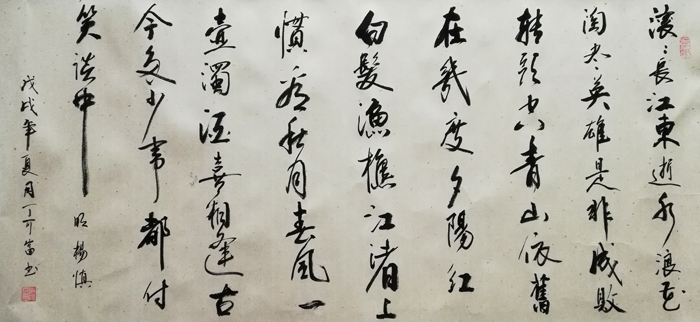 滚〻長江東逝水浪花
淘尽英雄是非成敗
转頭空青山依舊
在幾度夕陽红
白髮漁樵江渚上
慣看秋月春風一
壺濁酒喜相逢古
今多少事都付
笑談中 明楊慎
戊戌年夏月丁可书